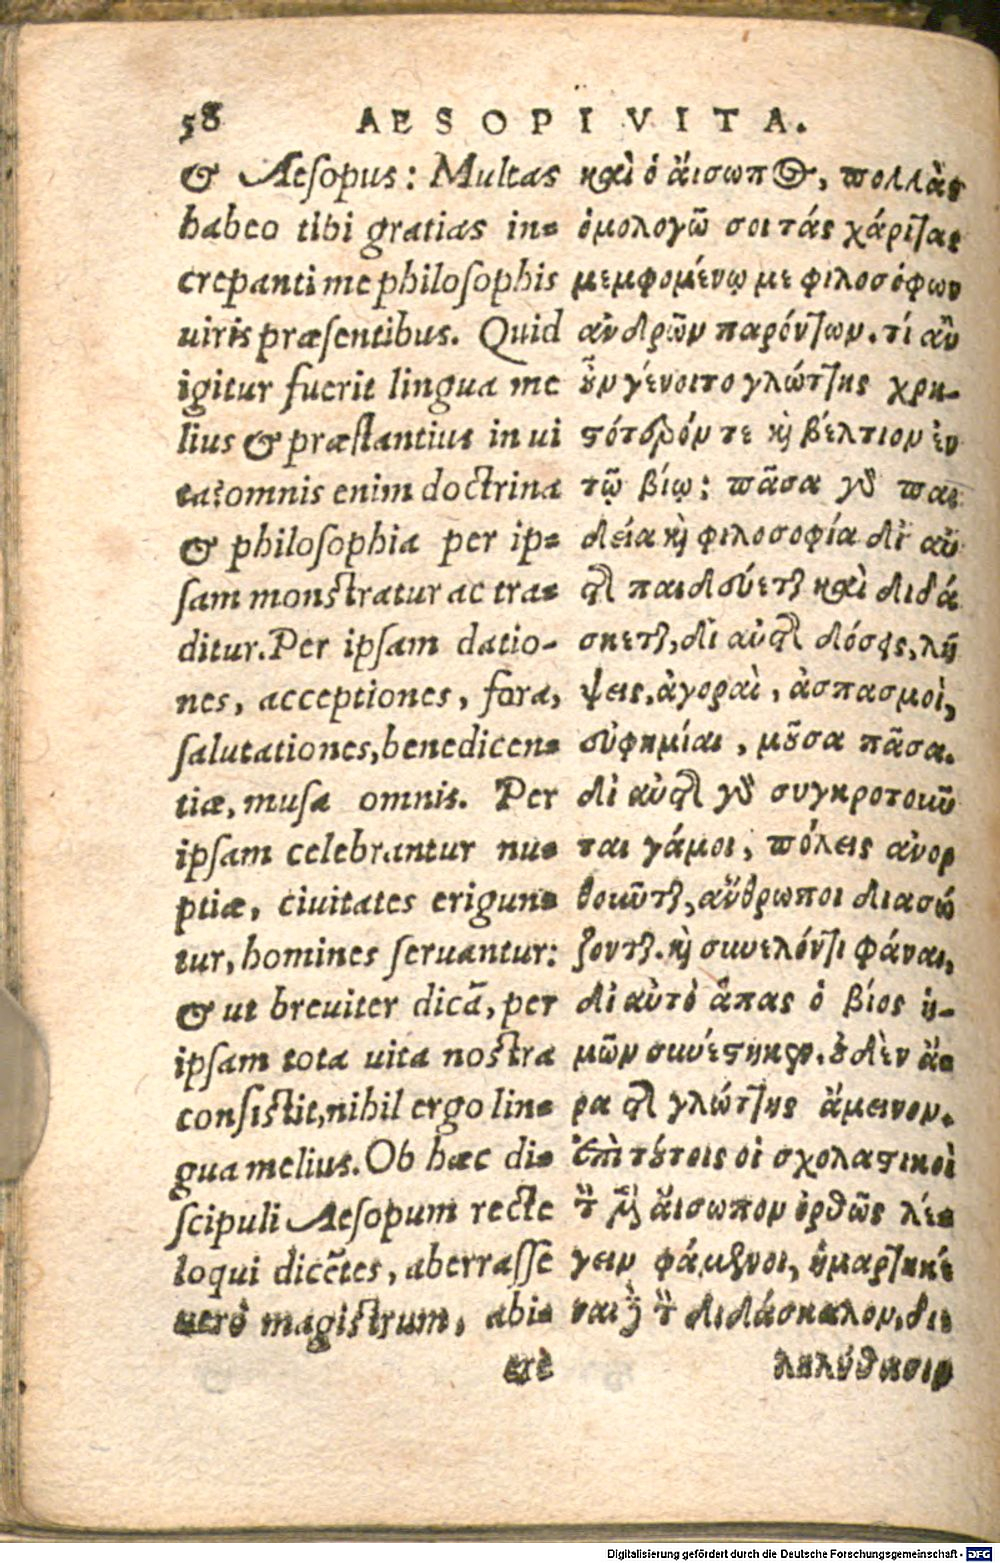 58 AESOPI VITA.
& Aesopus: Multas
habeo tibi gratias in-
crepanti me philosophis
uiris præsentibus. Quid
igitur fuerit lingua me
lius & præstantius in ui
ta? omnis enim doctrina
& philosophia per ip-
sam monstratur ac tra-
ditur. Per ipsam datio-
nes, acceptiones, fora,
salutationes, benedicen-
tiæ, musa omnis. Per
ipsam celebrantur nu-
ptiæ, ciuitates erigun-
tur, homines seruantur:
& ut breuiter dicã, per
ipsam tota uita nostra
consistit, nihil ergo lin-
gua melius. Ob hæc di-
scipuli Aesopum recte
loqui dicẽtes, aberrasse
uero magistrum, abi-
ere
καὶ ὁ ἄισωπος, πολλὰς
ὁμολογῶ σοι τάς χάριτας
μεμφομένῳ με φιλοσόφων
ανδρῶν παρόντων. τί ἂν
οὖν γένοιτο γλώττης χρη-
στότερόν τε καὶ βέλτιον ἐν
τῷ βίῳ; πᾶσα γὰρ παι
δεία καὶ φιλοσοφία δἰ αὐ
τῆς παιδεύεται καὶ διδά
σκεται, δἰ αὐτῆς δόσεις, λή
ψεις, ἀγοραὶ, ἀσπασμοὶ,
εὐφημίαι, μοῦσα πᾶσα.
δἰ αὐτῆς γὰρ συγκροτοῦν
ται γάμοι, πόλεις ἀνορ
θοῦνται, ἄνθρωποι διασώ
ζονται. καὶ συνελόντι φάναι,
δἰ αὐτὸ ἅπας ὁ βίος ἡ-
μῶν συνέστηκεν. οὐδὲν ἄ-
ρα τῆς γλώττης ἄμεινον.
ἐπὶ τούτοις οἱ σχολαστικοὶ
τὸν μὲν ἄισωπον ὀρθῶς λέ-
γειν φάμενοι, ἡμαρτηκέ
ναι δὲ τὸν διδάσκαλον, διε
ληλύθησιν
Digitalisierung gefördert durch die Deutsche Forschungsgemeinschaft - DFG